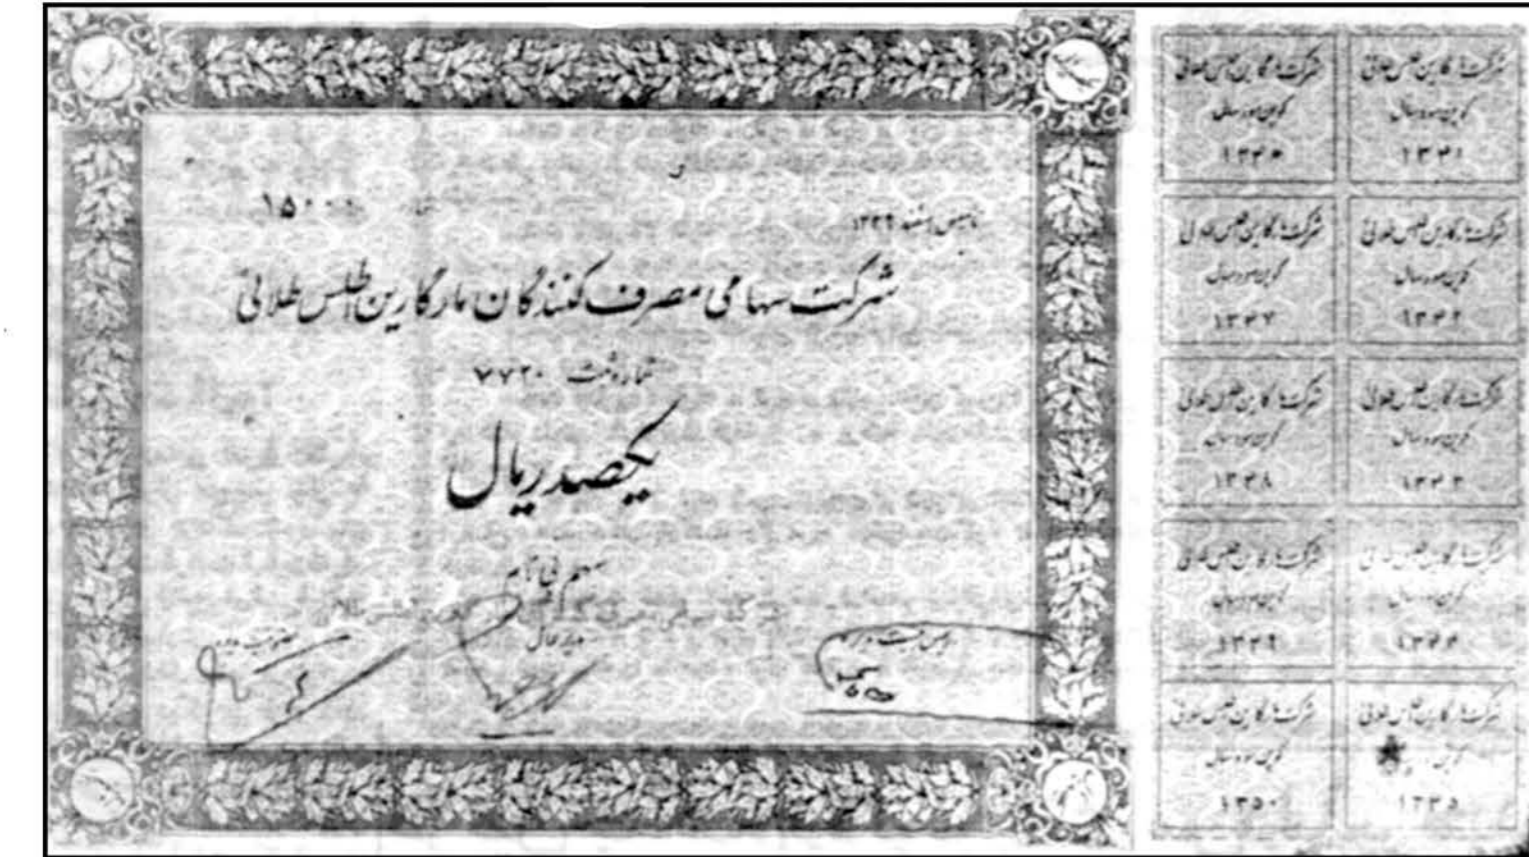 تاسیس اسفند ۱۳۳۹
شرکت سهامی مصرف کنندگان مارگارین اطلس طلائی
شماره ثبت ۷۷۲۰
یکصد ریال
سهم بی نام
رئیس هیئت مدیره
مدیر عامل
عضو هیئت مدیره
شرکت مارگارین اطلس طلائی
کوپن سود سال
۱۳۴۱
شرکت مارگارین اطلس طلائی
کوپن سود سال
۱۳۴۶
شرکت مارگارین اطلس طلائی
کوپن سود سال
۱۳۴۲
شرکت مارگارین اطلس طلائی
کوپن سود سال
۱۳۴۷
شرکت مارگارین اطلس طلائی
کوپن سود سال
۱۳۴۳
شرکت مارگارین اطلس طلائی
کوپن سود سال
۱۳۴۸
شرکت مارگارین اطلس طلائی
کوپن سود سال
۱۳۴۴
شرکت مارگارین اطلس طلائی
کوپن سود سال
۱۳۴۹
شرکت مارگارین اطلس طلائی
کوپن
۱۳۴۵
شرکت مارگارین اطلس طلائی
کوپن سود سال
۱۳۵۰